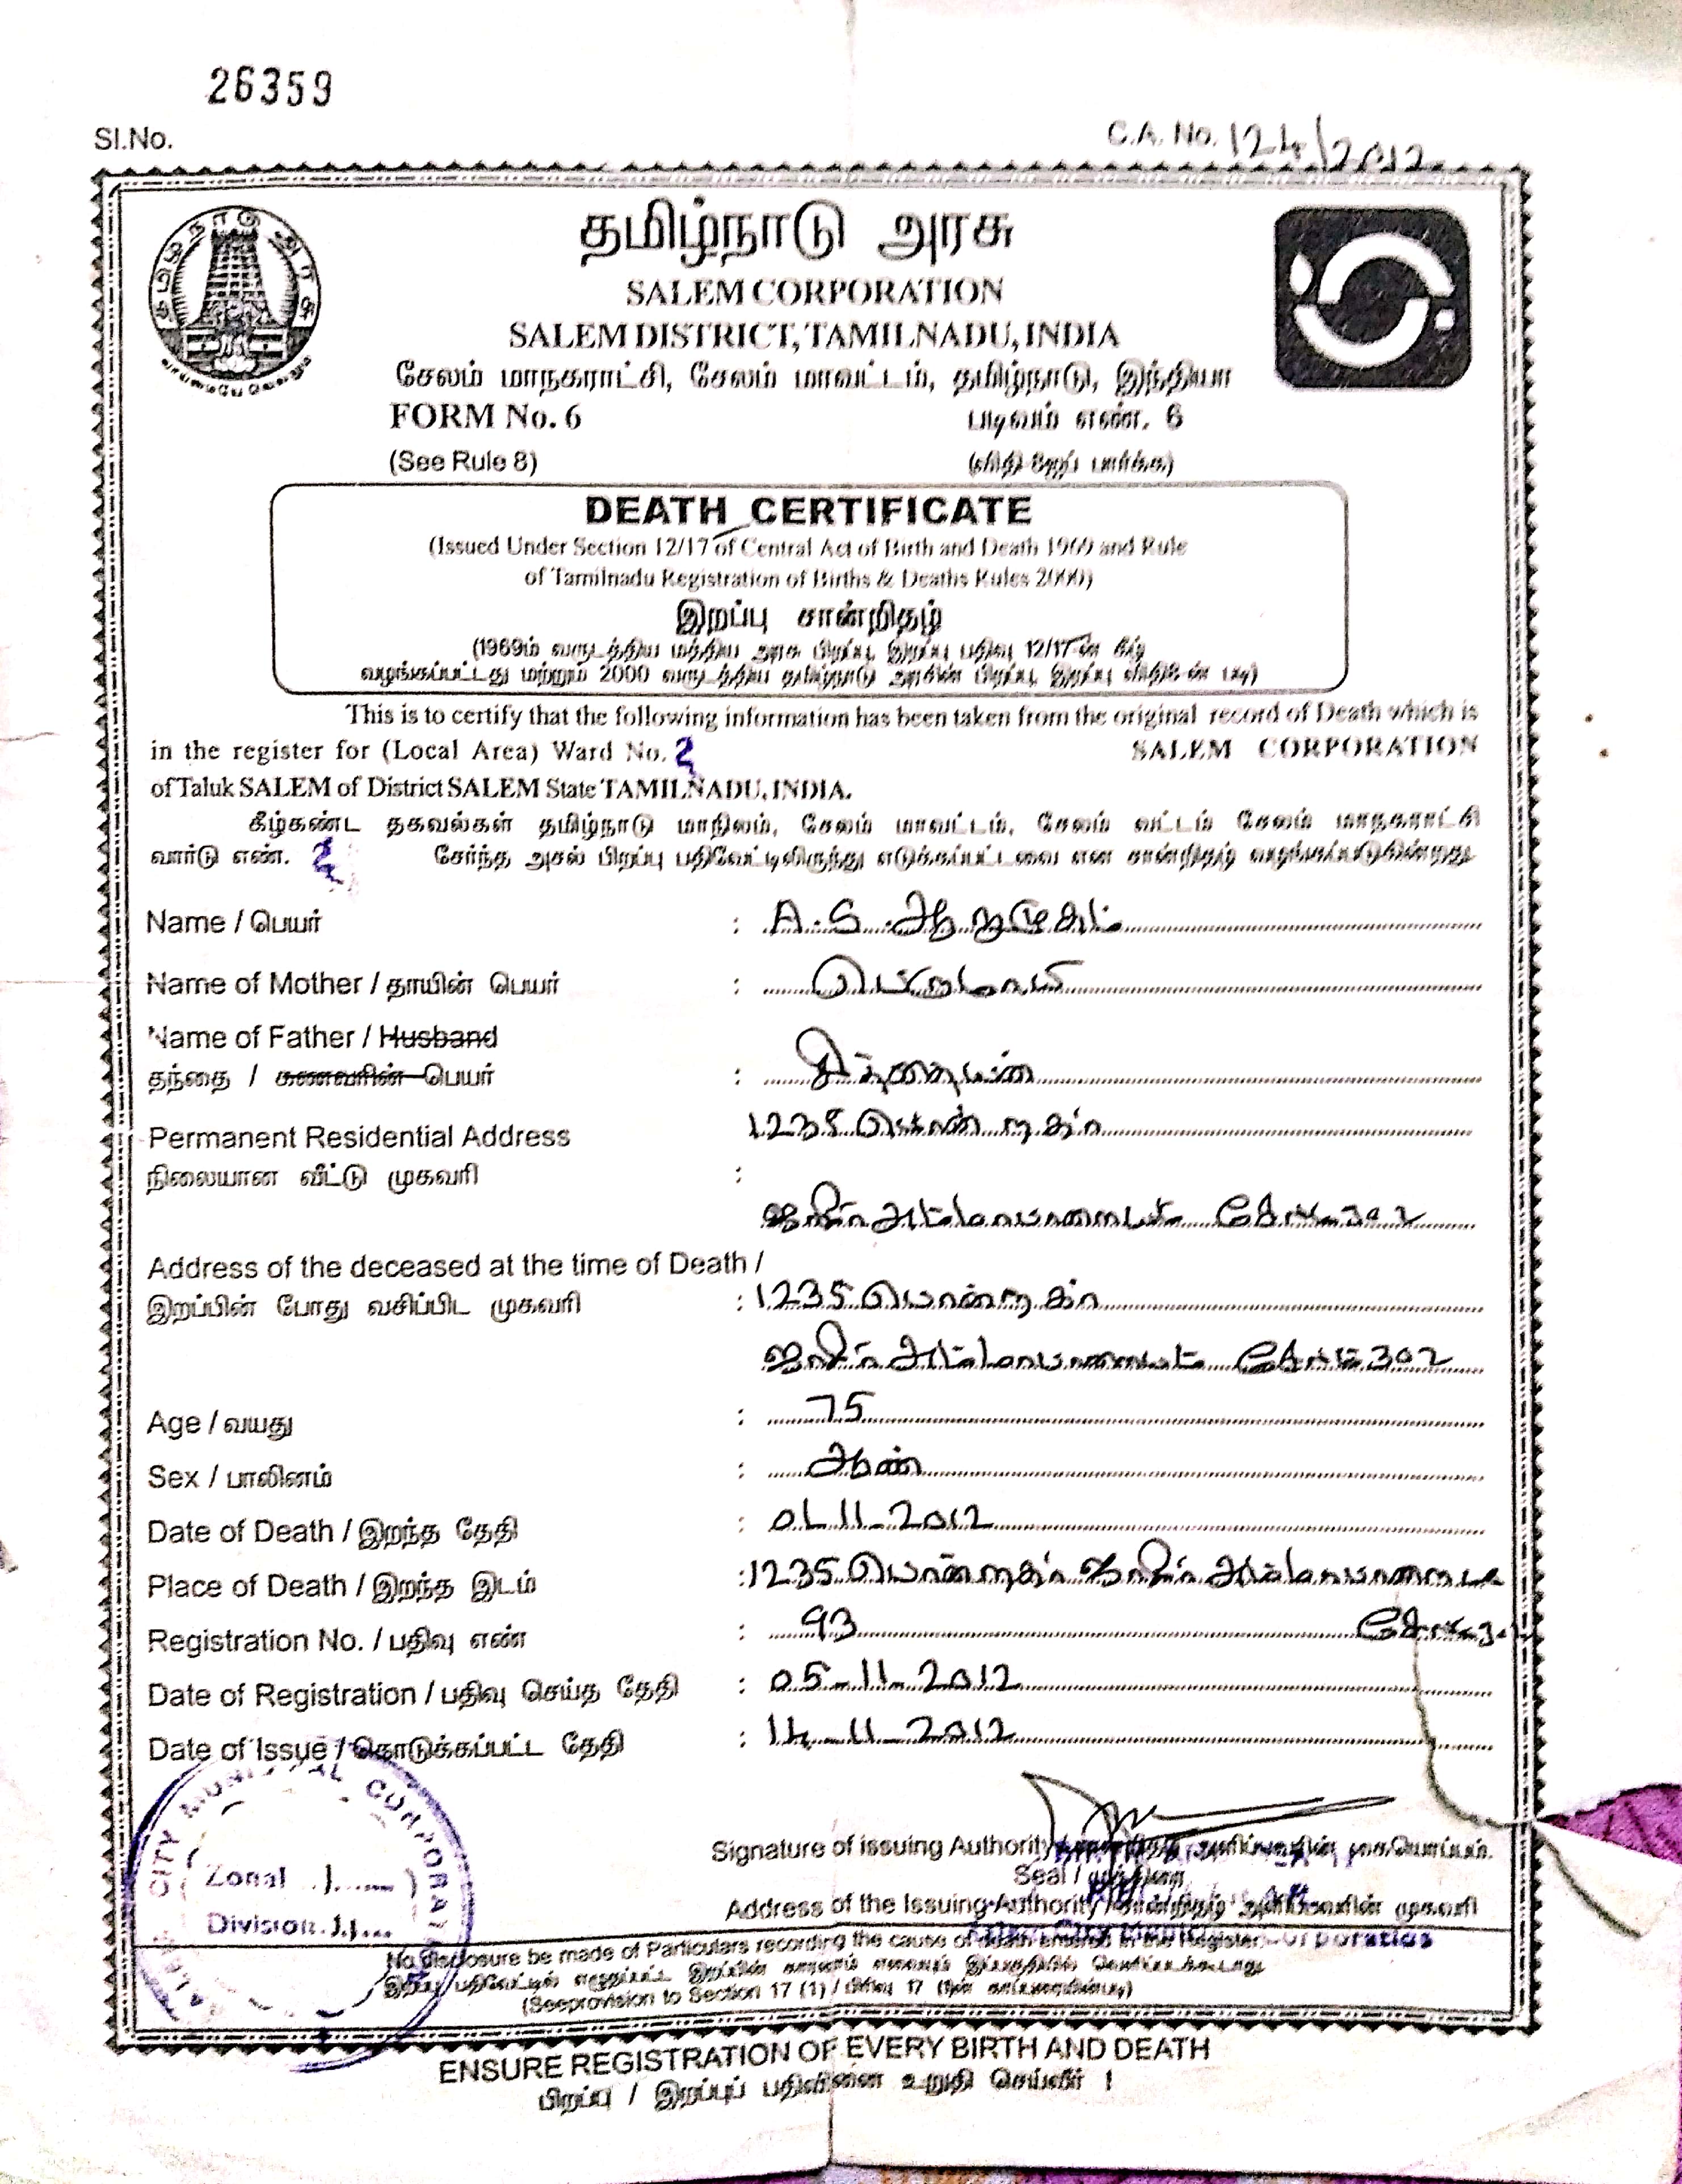 26359
Sl.No.
C.A. No. 124/2012
தமிழ்நாடு அரசு
தமிழ்நாடு அரசு
வாய்மையே வெல்லும்
SALEM CORPORATION
SALEM DISTRICT, TAMILNADU, INDIA
சேலம் மாநகராட்சி, சேலம் மாவட்டம், தமிழ்நாடு, இந்தியா
FORM No. 6 படிவம் எண். 6
(See Rule 8) (விதி 8ஐப் பார்க்க)
DEATH CERTIFICATE
(Issued Under Section 12/17 of Central Act of Birth and Death 1969 and Rule
of Tamilnadu Registration of Births & Deaths Rules 2000)
இறப்பு சான்றிதழ்
(1969ம் வருடத்திய மத்திய அரசு பிறப்பு, இறப்பு பதிவு 12/17-ன் கீழ்
வழங்கப்பட்டது மற்றும் 2000 வருடத்திய தமிழ்நாடு அரசின் பிறப்பு, இறப்பு விதி8-ன் படி)
This is to certify that the following information has been taken from the original record of Death which is
in the register for (Local Area) Ward No. 2 SALEM CORPORATION
of Taluk SALEM of District SALEM State TAMILNADU, INDIA.
கீழ்கண்ட தகவல்கள் தமிழ்நாடு மாநிலம், சேலம் மாவட்டம், சேலம் வட்டம் சேலம் மாநகராட்சி
வார்டு எண். 2 சேர்ந்த அசல் பிறப்பு பதிவேட்டிலிருந்து எடுக்கப்பட்டவை என சான்றிதழ் வழங்கப்படுகின்றது
Name / பெயர் : A.S. ஆறுமுகம்
Name of Mother / தாயின் பெயர் : பெருமாயி
Name of Father / Husband
தந்தை / கணவரின் பெயர் : சித்தையன்
Permanent Residential Address 1235 பொன் நகர்
நிலையான வீட்டு முகவரி :
ஜாகீர் அம்மாபாளையம் சேலம் 302
Address of the deceased at the time of Death /
இறப்பின் போது வசிப்பிட முகவரி : 1235 பொன் நகர்
ஜாகீர் அம்மாபாளையம் சேலம் 302
Age / வயது : 75
Sex / பாலினம் : ஆண்
Date of Death / இறந்த தேதி : 01-11-2012
Place of Death / இறந்த இடம் : 1235 பொன் நகர் ஜாகீர் அம்மாபாளையம்
Registration No. / பதிவு எண் : 93 சேலம்
Date of Registration / பதிவு செய்த தேதி : 05-11-2012
Date of Issue / கொடுக்கப்பட்ட தேதி : 14-11-2012
CITY MUNICIPAL CORPORATION
Zonal 1
Division 11
Signature of issuing Authority / அளிப்பவரின் கையொப்பம்.
Seal / முத்திரை
Address of the Issuing Authority / சான்றிதழ் அளிப்பவரின் முகவரி
City Municipal Corporation
No disclosure be made of Particulars recording the cause of death entered in the Register
இறப்பு பதிவேட்டில் எழுதப்பட்ட இறப்பின் காரணம்
(See provision to Section 17 (1) / பிரிவு 17
ENSURE REGISTRATION OF EVERY BIRTH AND DEATH
பிறப்பு / இறப்புப் பதிவினை உறுதி செய்வீர் !